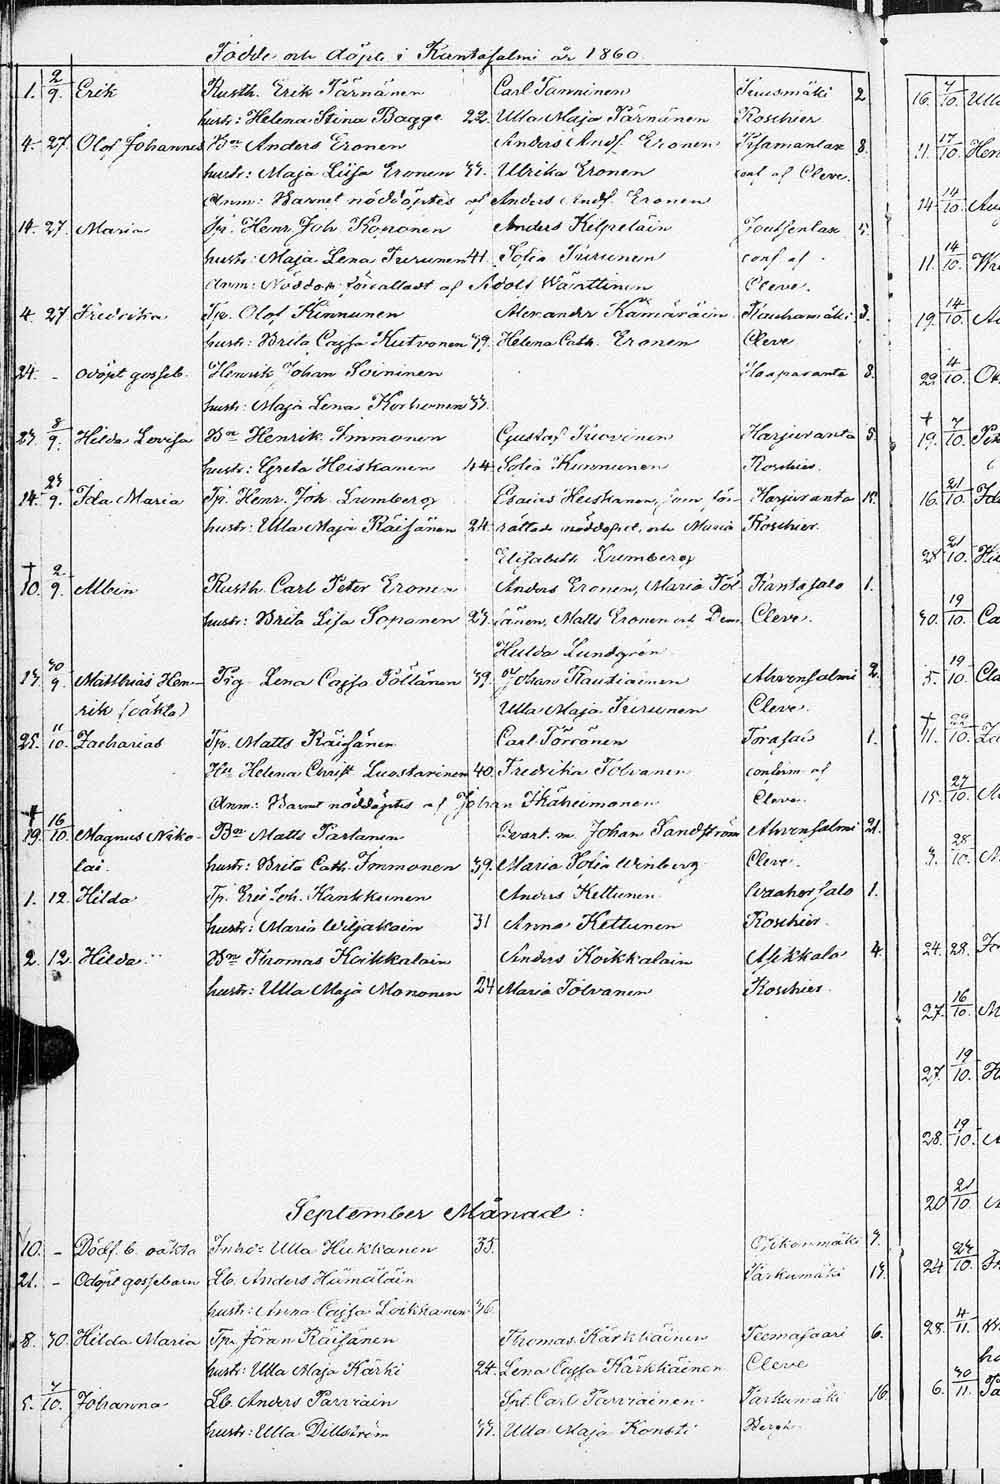 Födde och döpte i Kantasalmi år 1860
1. 2/9. Erik Rusth. Erik Pärnänen Carl Tanninen Kuusmäki 2
hustr: Helena Stina Bagge 22. Ulla Maja Pärnänen Roschier
4. 27 Olof Johannes Bon Anders Eronen Anders Andf. Eronen Ksamanlax 8.
hustr: Maja Lisa Eronen 33. Ulrika Eronen conf af Cleve.
Anm: Barnet nöddöptes af Anders Andf. Eronen
14. 27. Maria Tp. Henr. Joh. Koponen Anders Kilpeläin Joutsenlax 5.
hustr: Maja Lena Turunen 41. Sofia Turunen conf af
Anm: Nöddop förrättadt af Adolf Wänttinen Cleve.
4. 27 Fredrika Tp. Olof Kinnunen Alexander Kämäräin Rauhamäki 3.
hustr: Brita Cajsa Kutvonen 39. Helena Cath. Eronen Cleve
24. - odöpt gosseb. Henrik Johan Soininen Haaparanta 8.
hustr: Maja Lena Korhonen 33.
23. 8/9. Hilda Lovisa Bon Henrik Immonen Gustaf Tuovinen Harjuranta 5.
hustr: Greta Heiskanen 44 Sofia Kinnunen Roschier.
14. 23/9. Ida Maria Tp. Henr. Joh. Lumberg Esaias Heiskanen, som för- Harjuranta 15.
hustr: Ulla Maja Räisänen 24. rättade nöddopet, och Maria Roschier.
Elisabeth Lumberg
† 10. 2/9. Albin Rusth. Carl Peter Eronen Anders Eronen, Maria Pöl- Kantasalo 1.
hustr: Brita Lisa Soponen 23. länen, Matts Eronen och Dem. Cleve.
Hulda Lundgren
13. 30/9. Matthias Hen- Pig. Lena Cajsa Pöllänen 39. Johan Rautiainen Ahvensalmi 2.
rik (oäkta) Ulla Maja Turunen Cleve.
25. 11/10. Zacharias Tp. Matts Räisänen Carl Pörrönen Torasalo 1.
Hu Helena Christ Luostarinen 40. Fredrika Tolvanen confirm af
Anm: Barnet nöddöptes af Johan Ikäheimonen Cleve.
† 19. 16/10. Magnus Niko- Bon Matts Partanen Qvart. m. Johan Sandström Ahvensalmi 21.
lai. hustr: Brita Cath. Immonen 39. Maria Sofia Winberg Cleve.
1. 12. Hilda Tp. Eric Joh. Kankkunen Anders Kettunen Waahersalo 1.
hustr: Maria Wiljakain 31 Anna Kettunen Roschier.
2. 12. Hilda Bon Thomas Koikkalain Anders Koikkalain Asikkala 4.
hustr: Ulla Maja Mononen 24 Maria Tolvanen Roschier.
September Månad:
10. - Dödf. b. oäkta Inhs: Ulla Hukkanen 35. 7.
21. - Odöpt gossebarn Lb. Anders Hämäläin Parkumäki 13.
hustr: Anna Cajsa Loikkanen 36.
8. 30. Hilda Maria Tp. Jöran Räisänen Thomas Kärkkäinen Teemasaari 6.
hustr: Ulla Maja Kärki 24. Lena Cajsa Kärkkäinen Cleve
5. 7/10. Johanna Lb. Anders Parviain Spt. Carl Parviainen Parkumäki 16
hustr: Ulla Dillström 33. Ulla Maja Konsti Bergh.
16. 7/10. Ulla
11. 17/10. Hen
14. 14/10.
11. 14/10.
19. 14/10.
22. 4/10.
† 19. 7/10.
16. 21/10. Ida
28. 21/10.
30. 19/10. Ca
5. 19/10. Cla
† 11. 22/10. Za
15. 27/10.
3. 28/10.
24. 28. Jo
27. 16/10.
27. 19/10.
28. 19/10.
20 21/10
24 28/10.
28. 4/11.
6. 30/11.